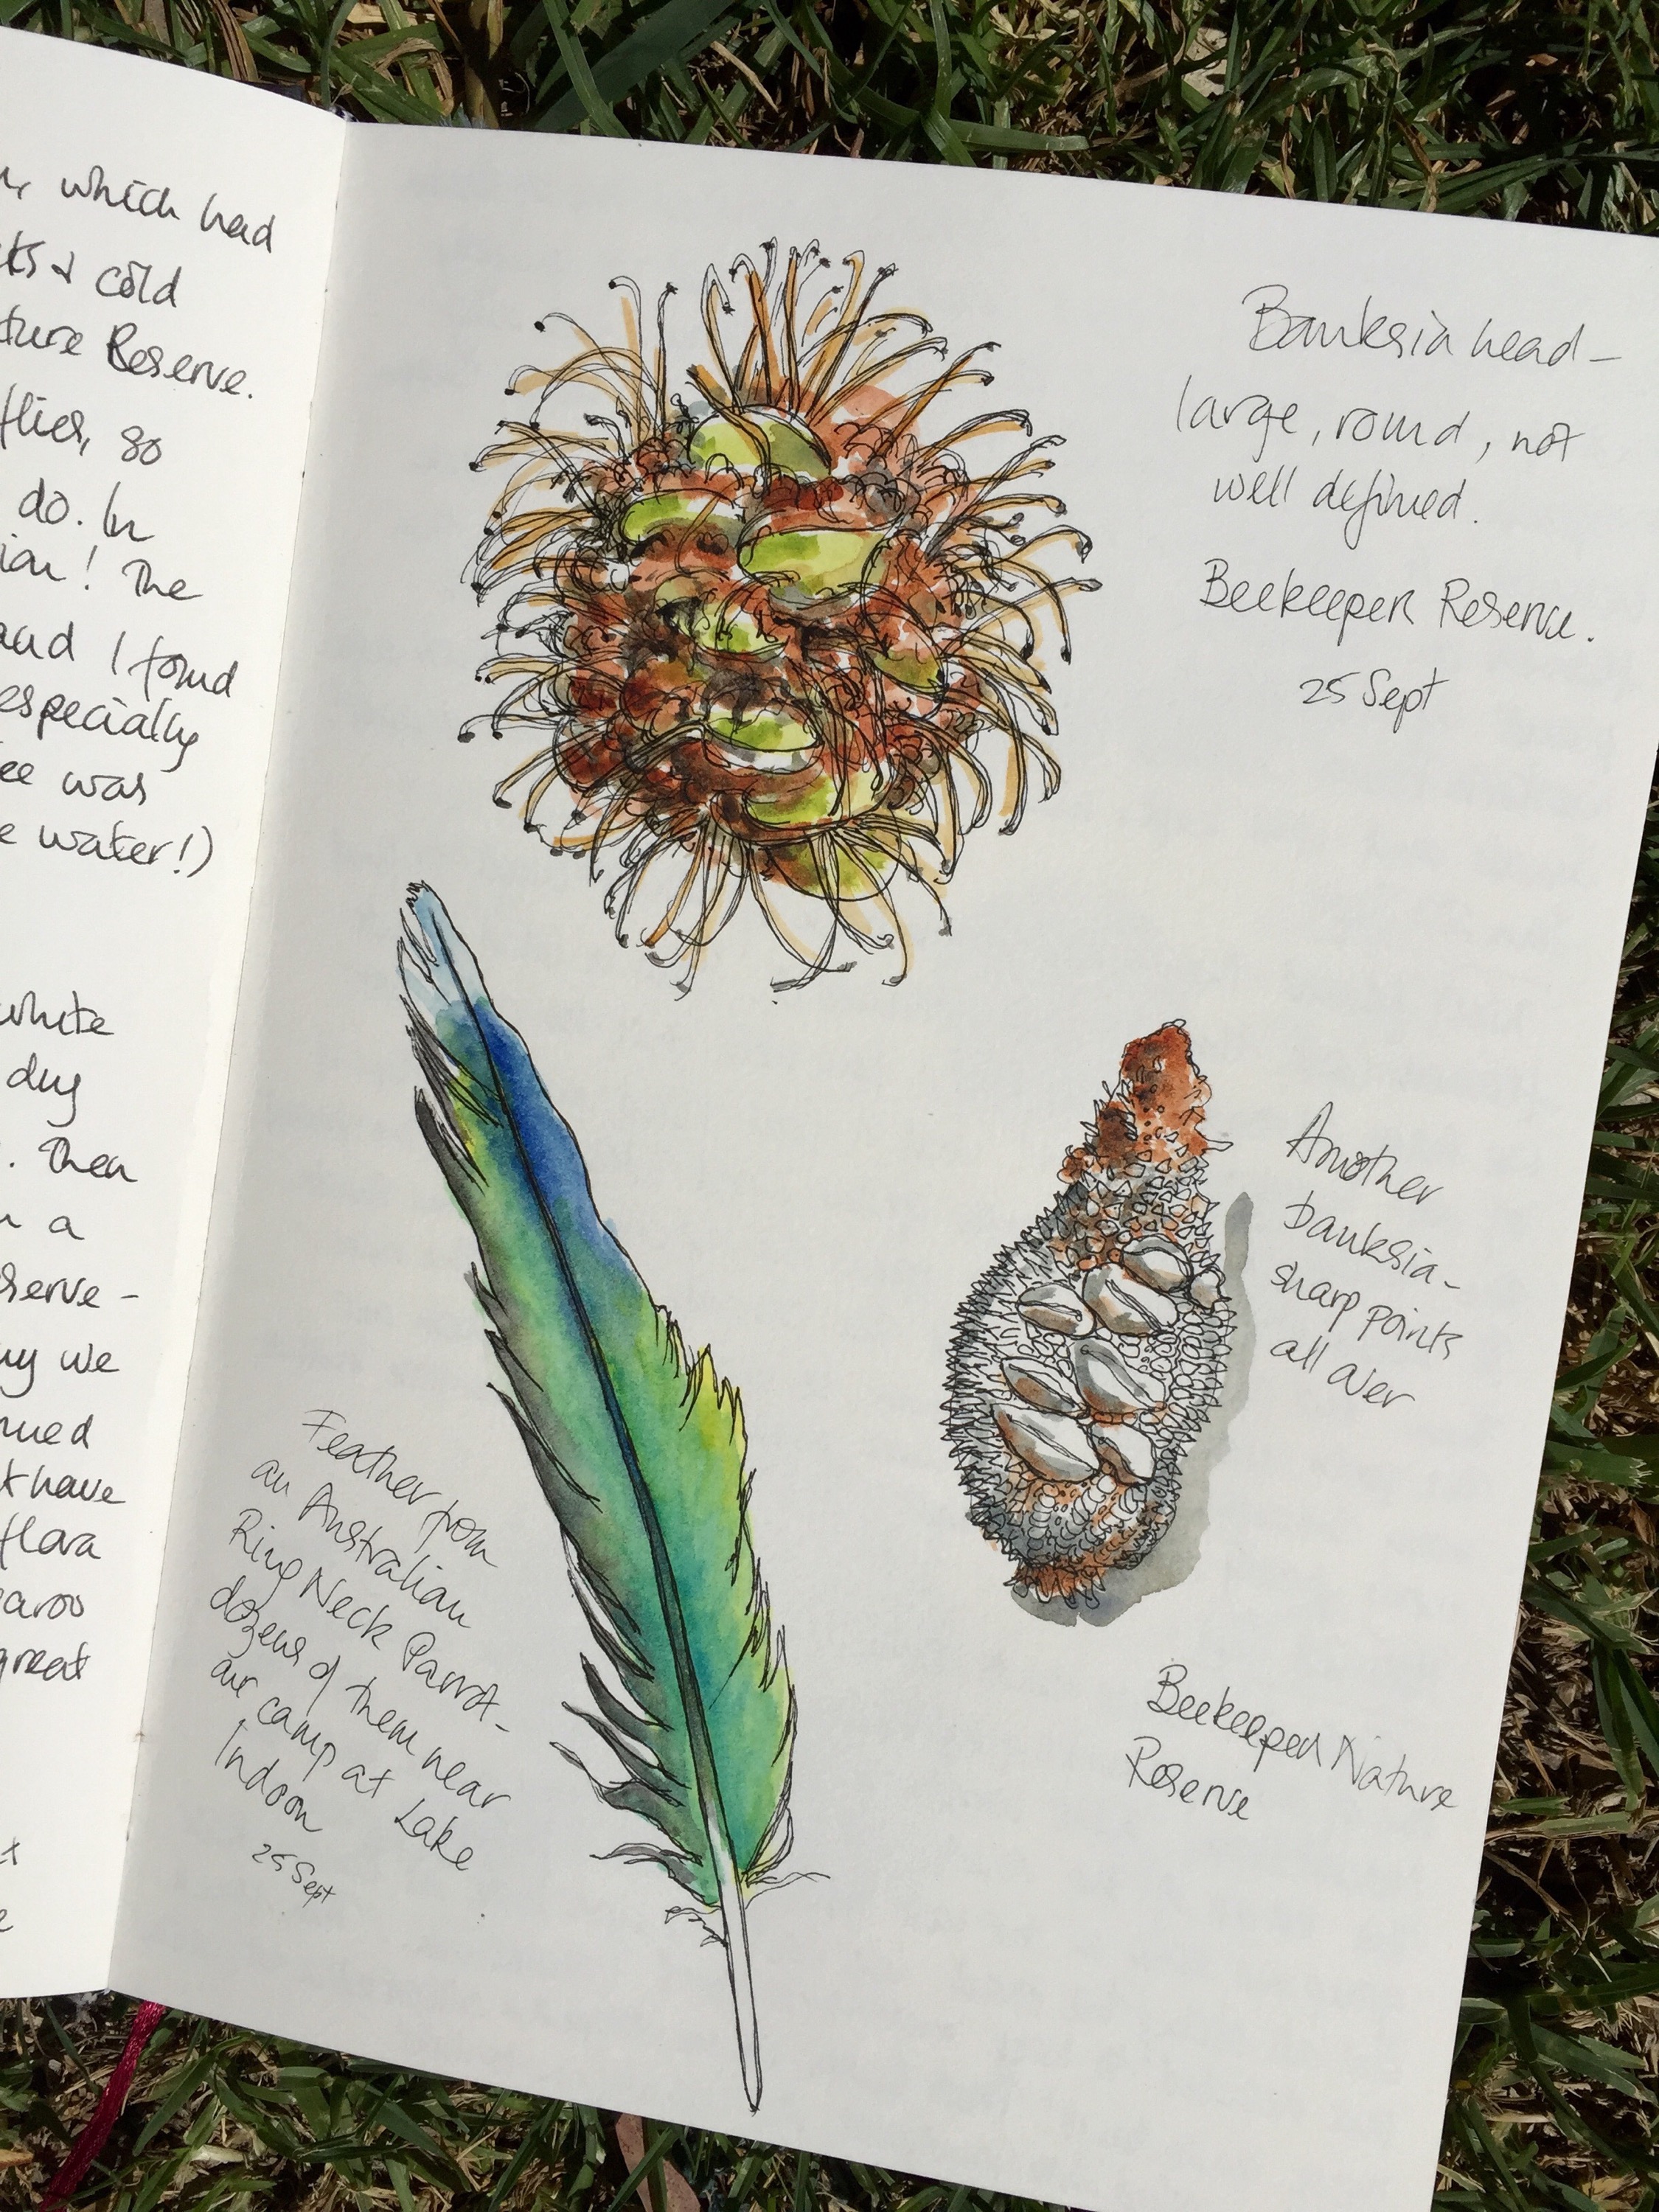 which had
& cold
ture Reserve.
flies, so
do. In
ion! The
and I found
especially
ee was
e water!)
white
dug
. Then
a
serve -
we
nued
t have
flora
garoo
great
Banksia head -
large, round, not
well defined.
Beekeeper Reserve.
25 Sept
Another
banksia -
sharp points
all over
Beekeeper Nature
Reserve
Feather from
an Australian
Ring Neck Parrot -
dozens of them near
our camp at Lake
Indoon
25 Sept